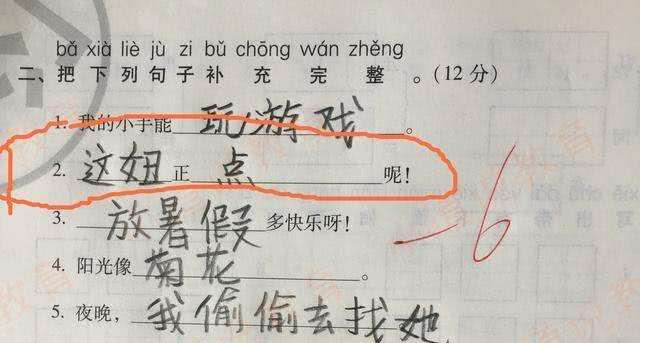 bǎ xià liè jù zi bǔ chōng wán zhěng
二、把下列句子补充完整。(12分)
1. 我的小手能 玩游戏 。
2. 这妞 正 点 呢!
3. 放暑假 多快乐呀!
-6
4. 阳光像 菊花 。
5. 夜晚, 我偷偷去找她